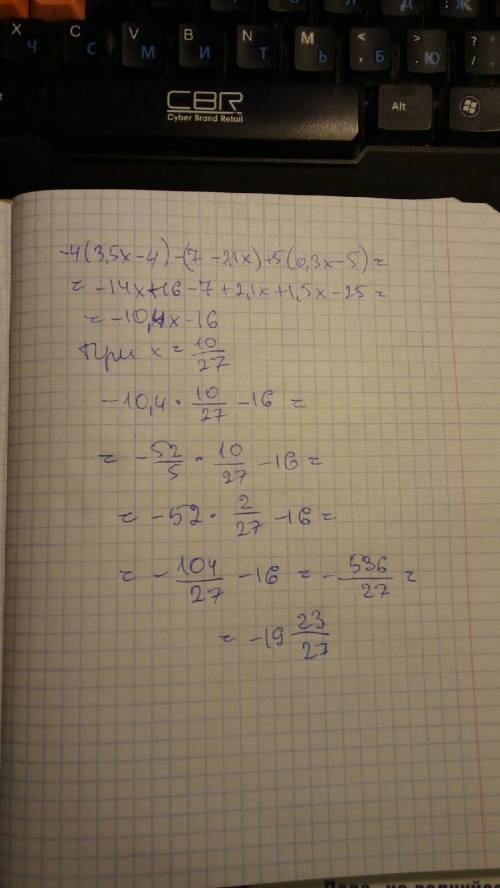 X C V B N M < > ?
Ч С М И Т Ь , Б . Ю /
CBR Alt
Cyber Brand Retail
-4(3,5x-4)-(7-2,1x)+5(0,3x-5)=
= -14x+16-7+2,1x+1,5x-25=
= -10,4x-16
При x = 10/27
-10,4 · 10/27 -16 =
= - 52/5 · 10/27 -16 =
= -52 · 2/27 -16 =
= - 104/27 -16 = - 536/27 =
= -19 23/27